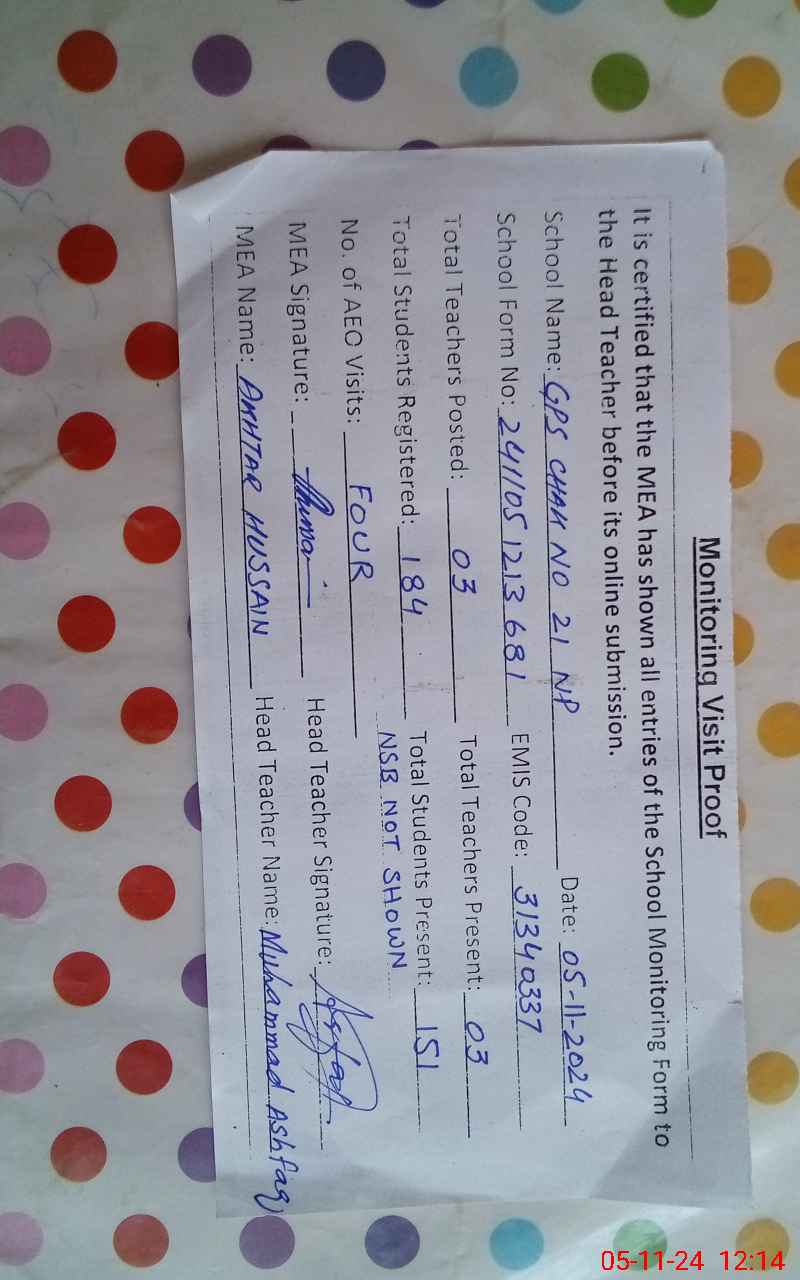 Monitoring Visit Proof
It is certified that the MEA has shown all entries of the School Monitoring Form to
the Head Teacher before its online submission.
School Name: GPS CHAK NO 21 NP Date: 05-11-2024
School Form No: 241105 1213 681 EMIS Code: 31340337
Total Teachers Posted: 03 Total Teachers Present: 03
Total Students Registered: 184 Total Students Present: 151
No. of AEO Visits: FOUR NSB NOT SHOWN
MEA Signature: Head Teacher Signature:
MEA Name: AKHTAR HUSSAIN Head Teacher Name: Muhammad Ashfaq
05-11-24 12:14